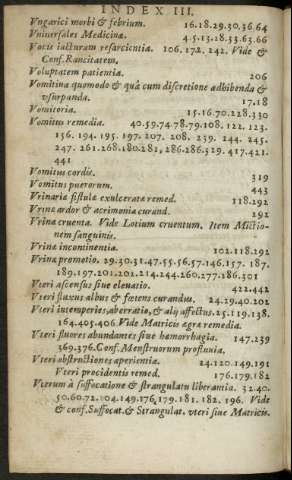 INDEX III.
Vngarici morbi & febrium. 16.18.29.30.36.64
Vniuersales Medicina. 4.5.13.28.53.65.66
Vocis iacturam resarcientia. 106.172.242. Vide &
Conf. Rancitatem.
Voluptatem patientia. 206
Vomitina quomodo & quâ cum discretione adhibenda &
vsurpanda. 17.18
Vomitoria. 15.16.70.228.330
Vomitus remedia. 40.59.74.78.79.108. 122. 123.
156. 194. 195. 197. 207. 208. 239. 244. 245.
247. 261.268.280.281, 286.286.329. 417.421.
441
Vomitus cordis. 319
Vomitus puerorum. 443
Vrinaria fistula exulcerata remed. 118.292
Vrinæ ardor & acrimonia curand. 292
Vrina cruenta. Vide Lotium cruentum. Item Mictio-
nem sanguinis.
Vrina incontinentia. 102.118.292
Vrina promotio. 29.30.31.47.55.56.57.146.157. 187.
189.197.201.202.214.244.260.277.186.301
Vteri ascensus siue eleuatio. 422.442
Vteri fluxus albus & fœtens curandus. 24.29.40.202
Vteri intemperies, aberratio, & alij affectus. 25.119.138.
164.405.406. Vide Matricis ægra remedia.
Vteri fluores abundantes siue hæmorrhagia. 147.239
369.376. Conf. Menstruorum profluuia.
Vteri obstructiones aperientia. 24.120.149.191
Vteri procidentis remed. 176.179.182
Vterum à suffocatione & strangulatu liberantia. 32.40.
50.60.72.104.149.176,179.181. 182. 196. Vide
& conf. Suffocat. & Strangulat. vteri siue Matricis.